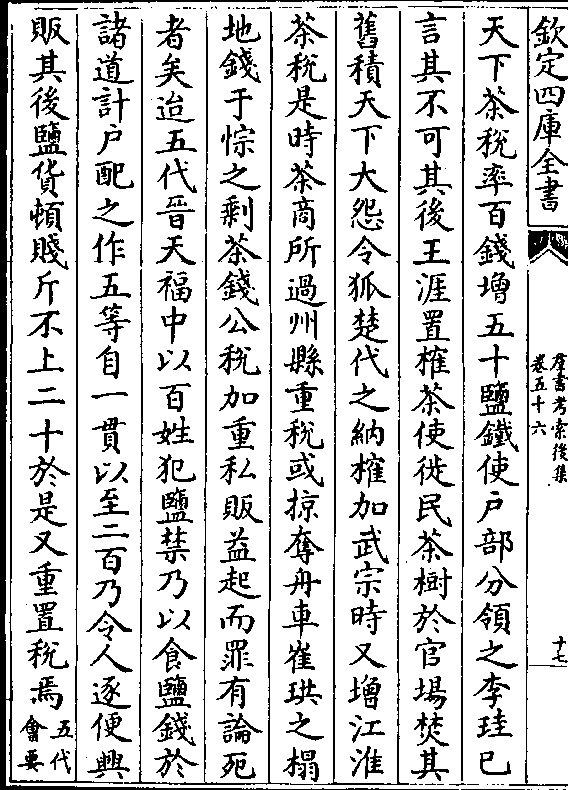 欽定四庫全書
羣書考索後集
卷五十六
十七
天下茶稅率百錢增五十鹽鐵使户部分領之李珪已
言其不可其後王涯置榷茶使徙民茶樹於官場焚其
舊積天下大怨令狐楚代之納榷加武宗時又增江淮
茶稅是時茶商所過州縣重稅或掠奪舟車崔珙之榻
地錢于悰之剩茶錢公稅加重私販益起而罪有論死
者矣迨五代晉天福中以百姓犯鹽禁乃以食鹽錢於
諸道計户配之作五等自一貫以至二百乃令人逐便興
販其後鹽貨頓賤斤不上二十於是又重置稅焉五代
會要